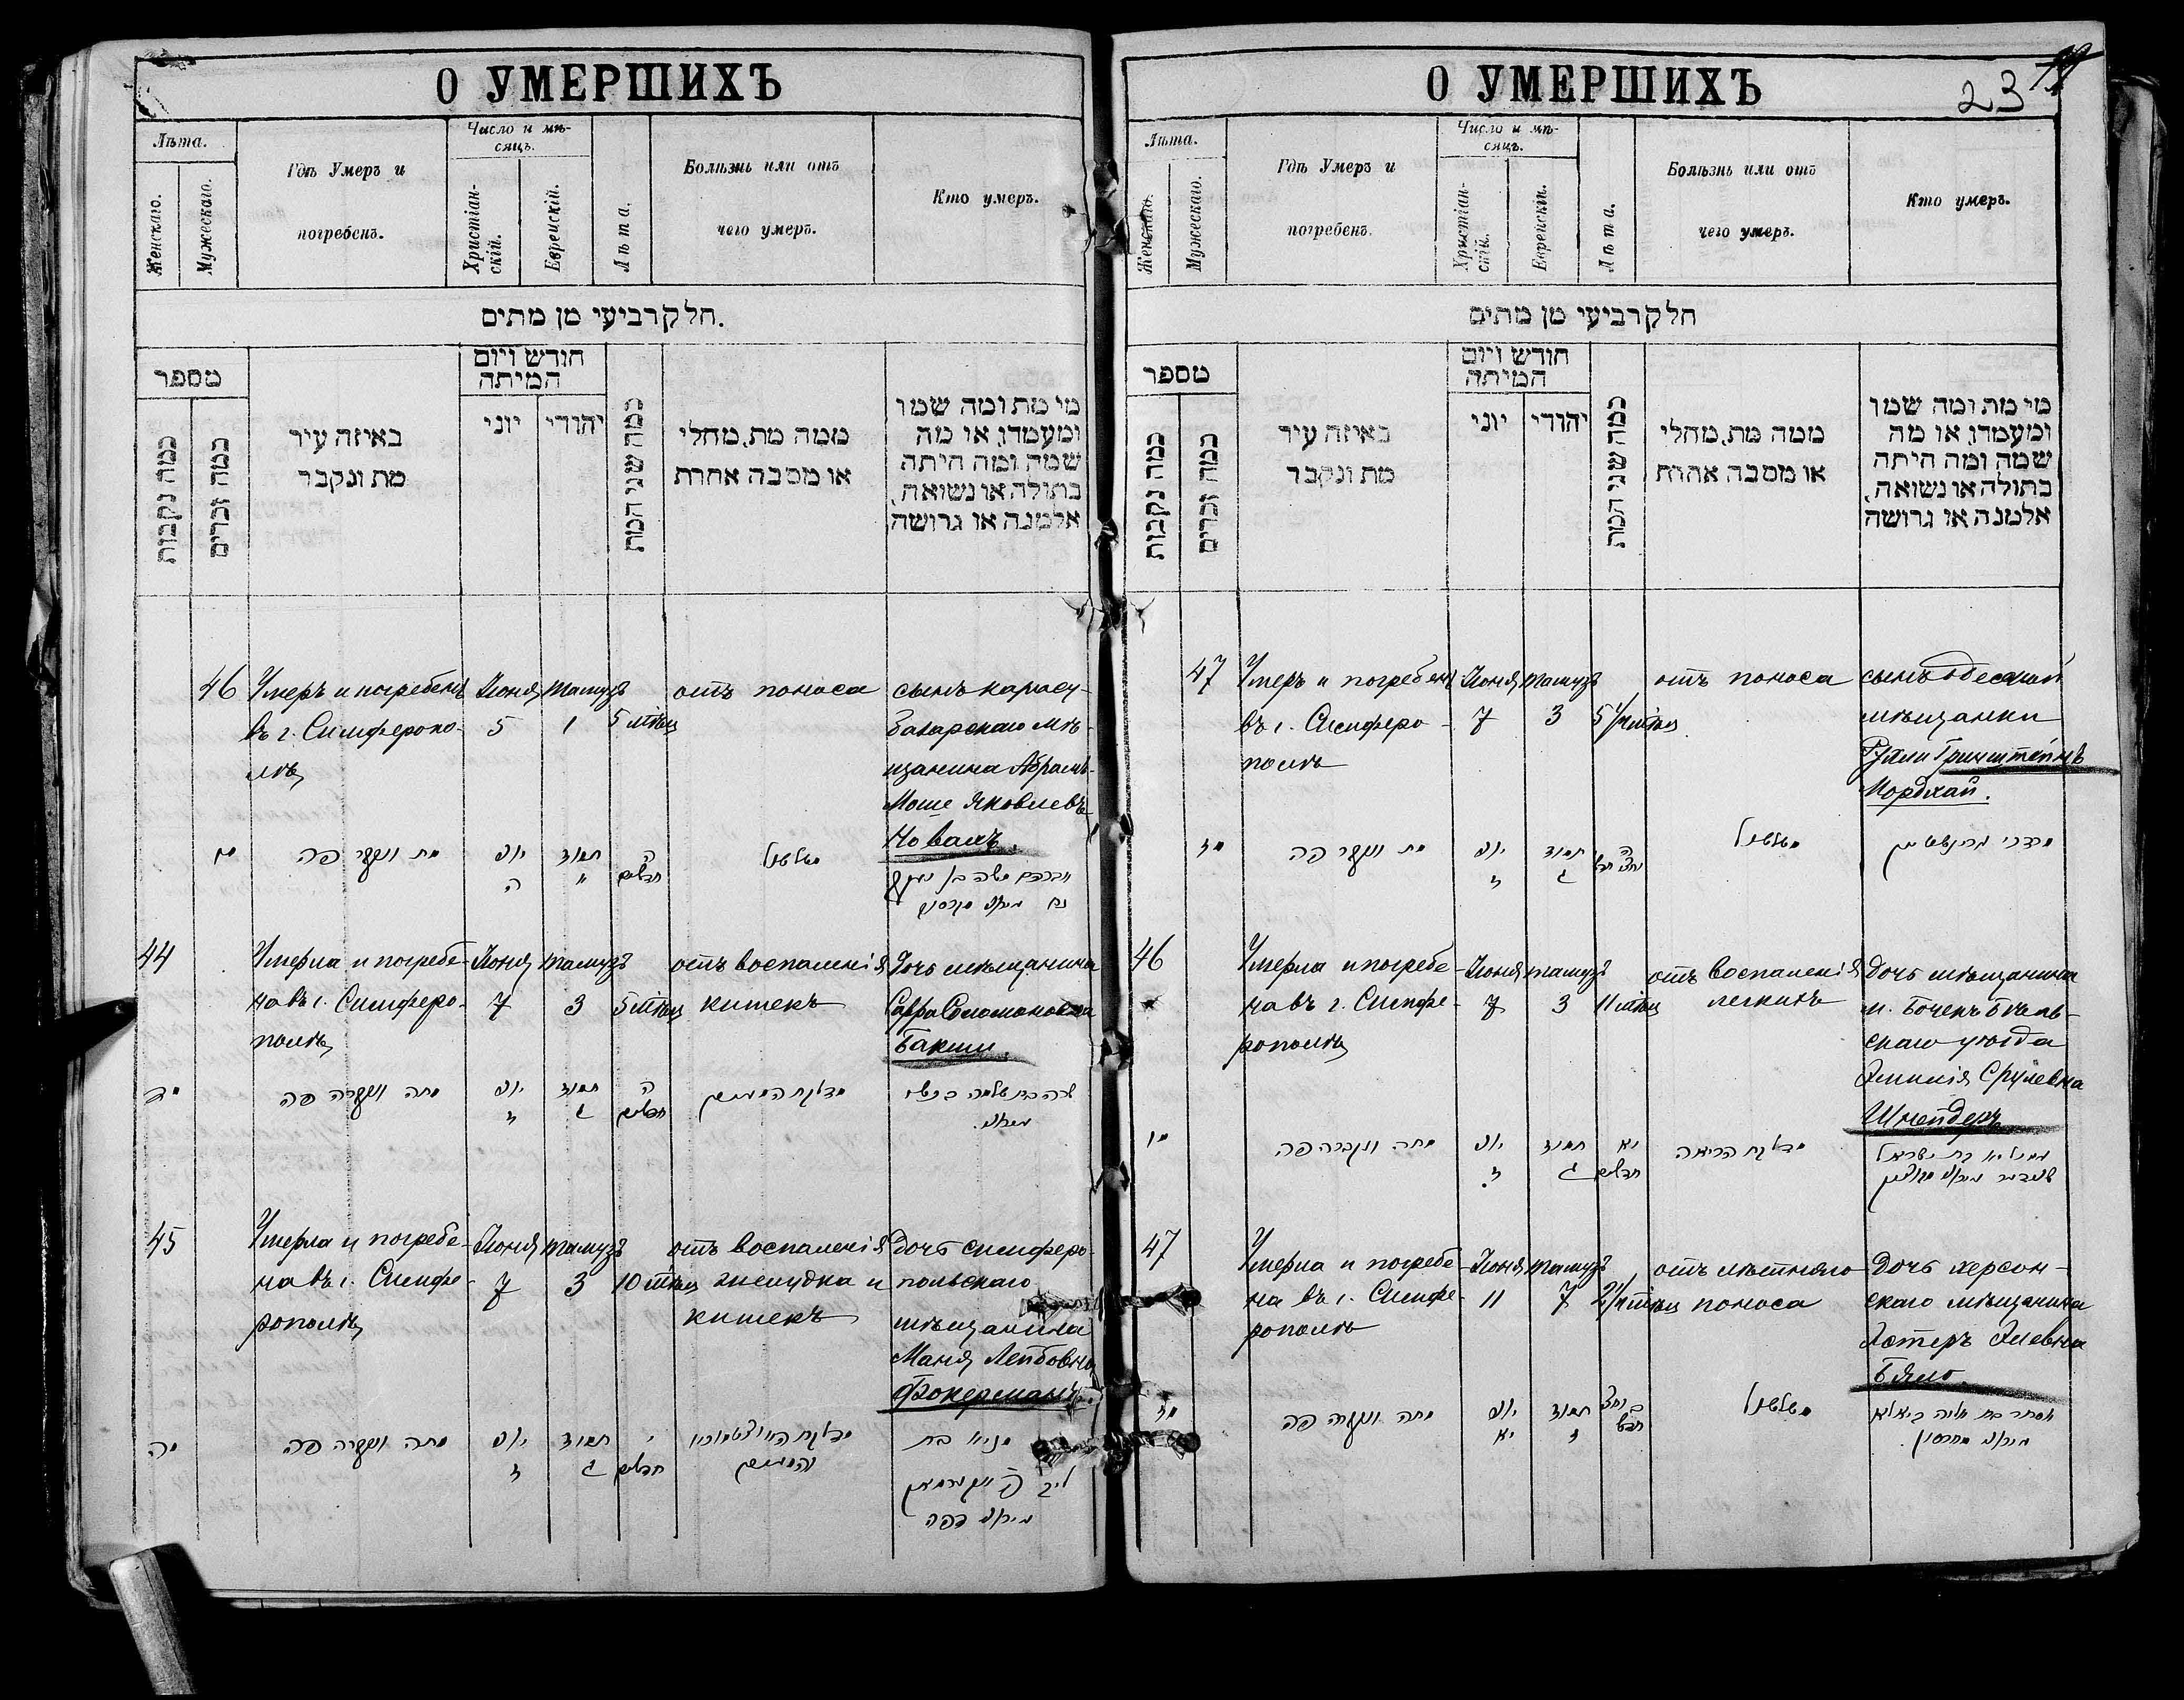 О УМЕРШИХЪ
Лѣта.
Женскаго.
Мужескаго.
Гдѣ Умеръ и
погребенъ.
Число и мѣ-
сяцъ.
Христіан-
скій.
Еврейскій.
Лѣта.
Болѣзнь или отъ
чего умеръ.
Кто умеръ.
חלק רביעי מן מתים.
מספר
כמה נקבות
כמה זכרים
באיזה עיר
מת ונקבר
חודש ויום
המיתה
יוני
יהודי
כמה שני המת
ממה מת, מחלי
או מסבה אחרת
מי מת ומה שמו
ומעמדו, או מה
שמה ומה היתה
בתולה או נשואה,
אלמנה או גרושה
46
Умеръ и погребенъ
въ г. Симферопо-
лѣ
Іюня
5
тамузъ
1
5 мѣсяц
отъ поноса
сынъ карасу-
базарскаго мѣ-
щанина Абрамъ-
Моше Яковлевъ
Новакъ.
מת ונקבר פה
יוני
ה
תמוז
ה
חדשים
משלשול
אברהם משה בן יעקב
44
Умерла и погребе-
на въ г. Симферо-
полѣ
Іюня
7
тамузъ
3
5 мѣсяц
отъ воспаленія
кишекъ
Дочь мѣщанина
Сарра Соломоновна
Бакши.
מד
מתה ונקברה פה
יוני
ז
תמוז
ג
ה
חדשים
מדלקת המעים
שרה בת שלמה בקשי
45
Умерла и погребе-
на въ г. Симфе-
рополѣ
Іюня
7
тамузъ
3
10 мѣсяц
отъ воспаленія
желудка и
кишекъ
дочь симферо-
польскаго
мѣщанина
Маня Лейбовна
Фокерманъ.
מה
מתה ונקברה פה
יוני
ז
תמוז
ג
י
חדשים
והמעים
מניא בת
ליב
מפה
О УМЕРШИХЪ
23
Лѣта.
Женскаго.
Мужескаго.
Гдѣ Умеръ и
погребенъ.
Число и мѣ-
сяцъ.
Христіан-
скій.
Еврейскій.
Лѣта.
Болѣзнь или отъ
чего умеръ.
Кто умеръ.
חלק רביעי מן מתים
מספר
כמה נקבות
כמה זכרים
באיזה עיר
מת ונקבר
חודש ויום
המיתה
יוני
יהודי
כמה שני המת
ממה מת, מחלי
או מסבה אחרת
מי מת ומה שמו
ומעמדו, או מה
שמה ומה היתה
בתולה או נשואה,
אלמנה או גרושה
47
Умеръ и погребенъ
въ г. Симферо-
полѣ
Іюня
7
тамузъ
3
отъ поноса
сынъ одесской
мѣщанки
Рухли Гринштейнъ
Мордхай.
מז
מת ונקבר פה
יוני
ז
תמוז
ג
משלשול
מרדכי גרינשטיין
46
Умерла и погребе-
на въ г. Симфе-
рополѣ
Іюня
7
тамузъ
3
11 мѣсяц
отъ воспаленія
легкихъ
дочь мѣщанина
скаго уѣзда
Эмилія Срулевна
Шнейдеръ
מו
מתה ונקברה פה
יוני
ז
תמוז
ג
יא
חדשים
מדלקת הריאה
בת ישראל
שניידער
47
Умерла и погребе-
на въ г. Симфе-
рополѣ
Іюня
11
тамузъ
7
отъ лѣтняго
поноса
Дочь херсон-
скаго мѣщанина
Эстеръ Элевна
מז
מתה ונקברה פה
יוני
יא
תמוז
ז
משלשול
אסתר בת